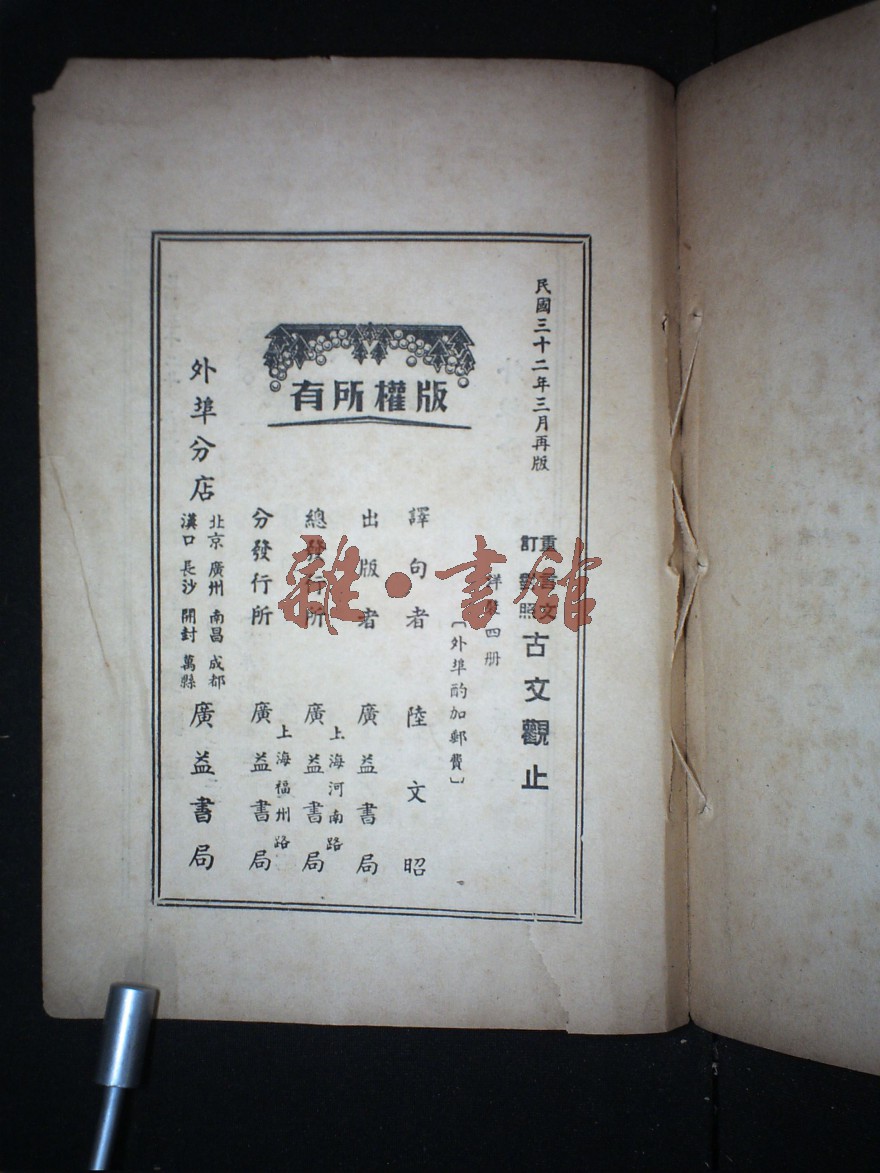 民國三十二年三月再版
重言文
訂對照
古文觀止
洋裝四册
〔外埠酌加郵費〕
版權所有
譯句者 陸文昭
出版者 廣益書局
上海河南路
總發行所 廣益書局
上海福州路
分發行所 廣益書局
外埠分店
北京 廣州 南昌 成都
漢口 長沙 開封 萬縣
廣益書局
雜·書館